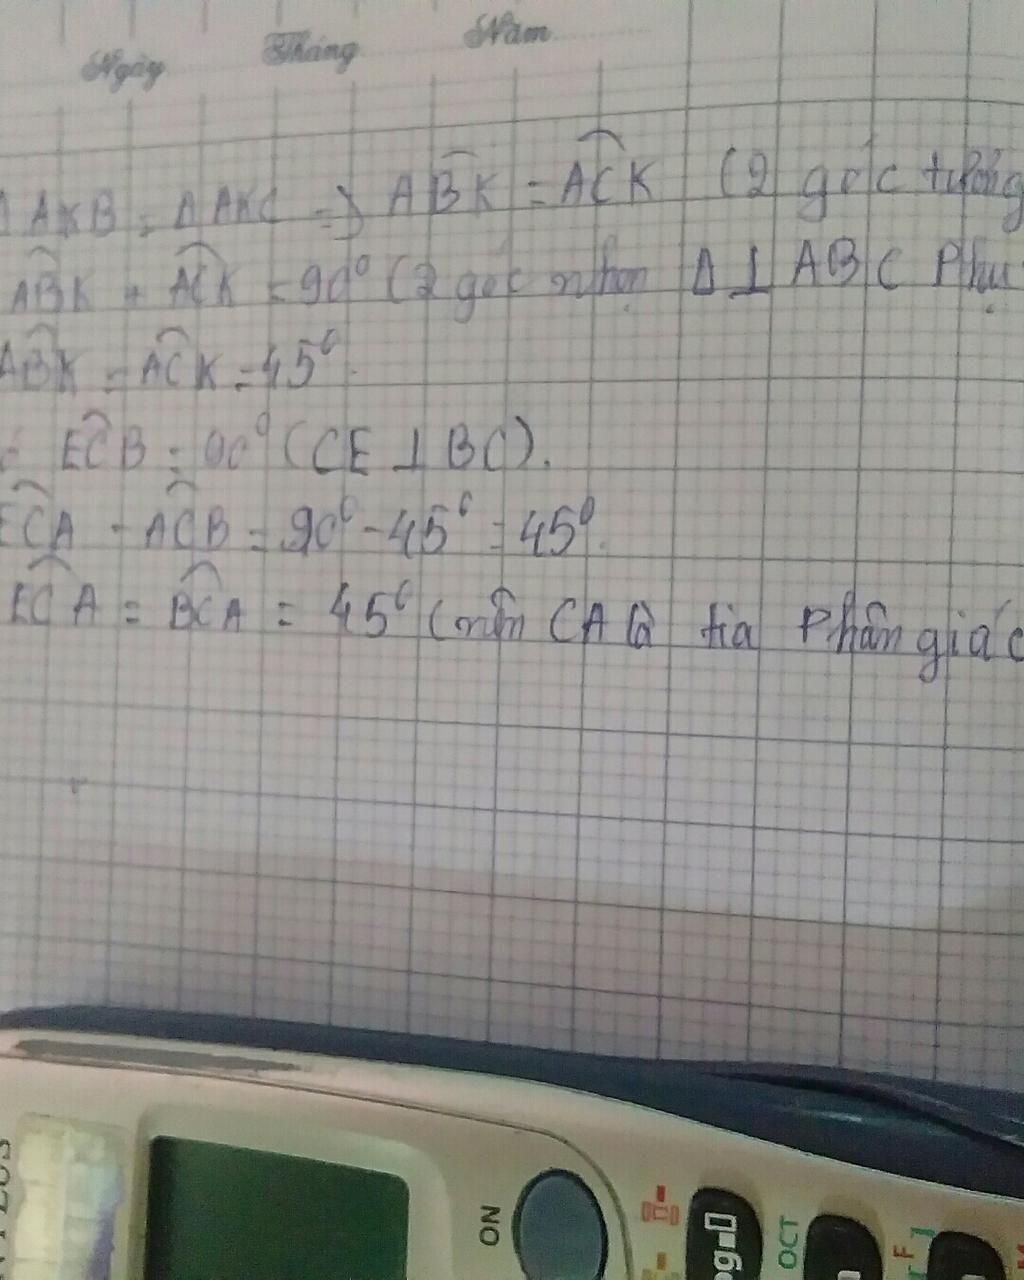 Ngày Tháng Năm
Δ AKB = Δ AKC => ABK = ACK (2 góc tương
ABK + ACK = 90⁰ (2 góc nhọn Δ⊥ ABC Phụ
ABK = ACK = 45⁰.
ECB = 90⁰ (CE ⊥ BC).
ECA - ACB = 90⁰ - 45⁰ = 45⁰.
ECA = BCA = 45⁰ (nên CA là tia Phân giác
ON
OCT
F